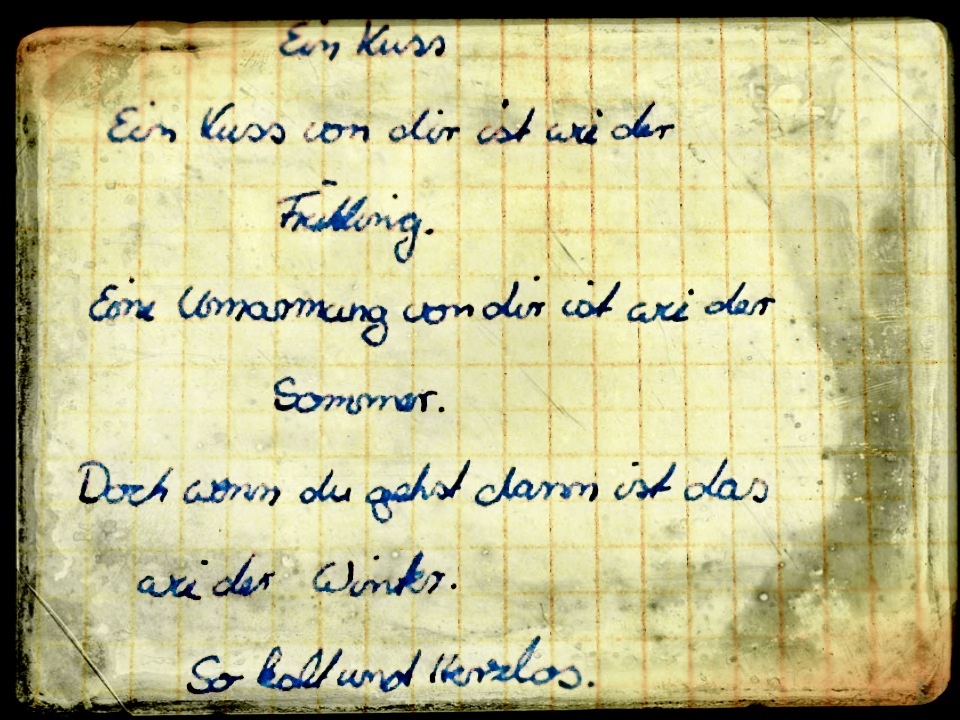 Ein Kuss
Ein Kuss von dir ist wie der
Frühling.
Eine Umarmung von dir ist wie der
Sommer.
Doch wenn du gehst dann ist das
wie der Winter.
So kalt und Herzlos.